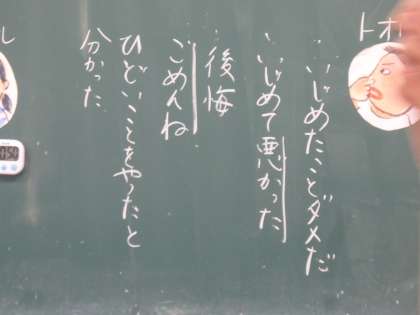 トオル
いじめたことダメだ
いじめて悪かった
後悔
ごめんね
ひどいことをやったと
分かった
ル